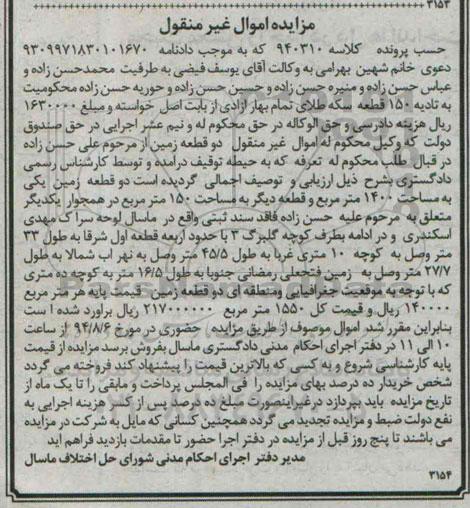 ۳۱۵۳
مزایده اموال غیر منقول
حسب پرونده کلاسه ۹۴۰۳۱۰ که به موجب دادنامه ۹۳۰۹۹۷۱۸۳۰۱۰۱۶۷۰
دعوی خانم شهین بهرامی به وکالت آقای یوسف فیضی به طرفیت محمدحسن زاده و
عباس حسن زاده و منیره حسن زاده و حسین حسن زاده و حوریه حسن زاده محکومیت
به تادیه ۱۵۰ قطعه سکه طلای تمام بهار ازادی از بابت اصل خواسته و مبلغ ۱۶۳۰۰۰۰
ریال هزینه دادرسی و حق الوکاله در حق محکوم له و نیم عشر اجرایی در حق صندوق
دولت که وکیل محکوم له اموال غیر منقول دو قطعه زمین از مرحوم علی حسن زاده
در قبال طلب محکوم له تعرفه که به حیطه توقیف درآمده و توسط کارشناس رسمی
دادگستری بشرح ذیل ارزیابی و توصیف اجمالی گردیده است دو قطعه زمین یکی
به مساحت ۱۴۰۰ متر مربع و قطعه دیگر به مساحت ۱۵۰ متر مربع در همجوار یکدیگر
متعلق به مرحوم علیه حسن زاده فاقد سند ثبتی واقع در ماسال لوحه سرا ک مهدی
اسکندری و در ادامه بطرف کوچه گلبرگ ۳ با حدود اربعه قطعه اول شرقا به طول ۳۳
متر وصل به کوچه ۱۰ متری غربا به طول ۴۵/۵ متر وصل به نهر اب شمالا به طول
۲۷/۷ متر وصل به زمین فتحعلی رمضانی جنوبا به طول ۱۶/۵ متر به کوچه ده متری
که با توجه به موقعیت جغرافیایی ومنطقه ای دو قطعه زمین قیمت پایه هر متر مربع
۱۴۰۰۰۰ ریال و قیمت کل ۱۵۵۰ متر مربع ۲۱۷۰۰۰۰۰۰ ریال براورد شده ا ست
بنابراین مقرر شد اموال موصوف از طریق مزایده حضوری در مورخ ۹۴/۸/۶ از ساعت
۱۰ الی ۱۱ در دفتر اجرای احکام مدنی دادگستری ماسال بفروش برسد مزایده از قیمت
پایه کارشناسی شروع و به کسی که بالاترین قیمت را پیشنهاد کند فروخته می گردد
شخص خریدار ده درصد بهای مزایده را فی المجلس پرداخت و مابقی را تا یک ماه از
تاریخ مزایده باید بپردازد در غیراینصورت مبلغ ده درصد پس از کسر هزینه اجرایی به
نفع دولت ضبط و مزایده تجدید می گردد همچنین کسانی که مایل به شرکت در مزایده
می باشند تا پنج روز قبل از مزایده در دفتر اجرا حضور تا مقدمات بازدید فراهم اید
مدیر دفتر اجرای احکام مدنی شورای حل اختلاف ماسال
۳۱۵۴